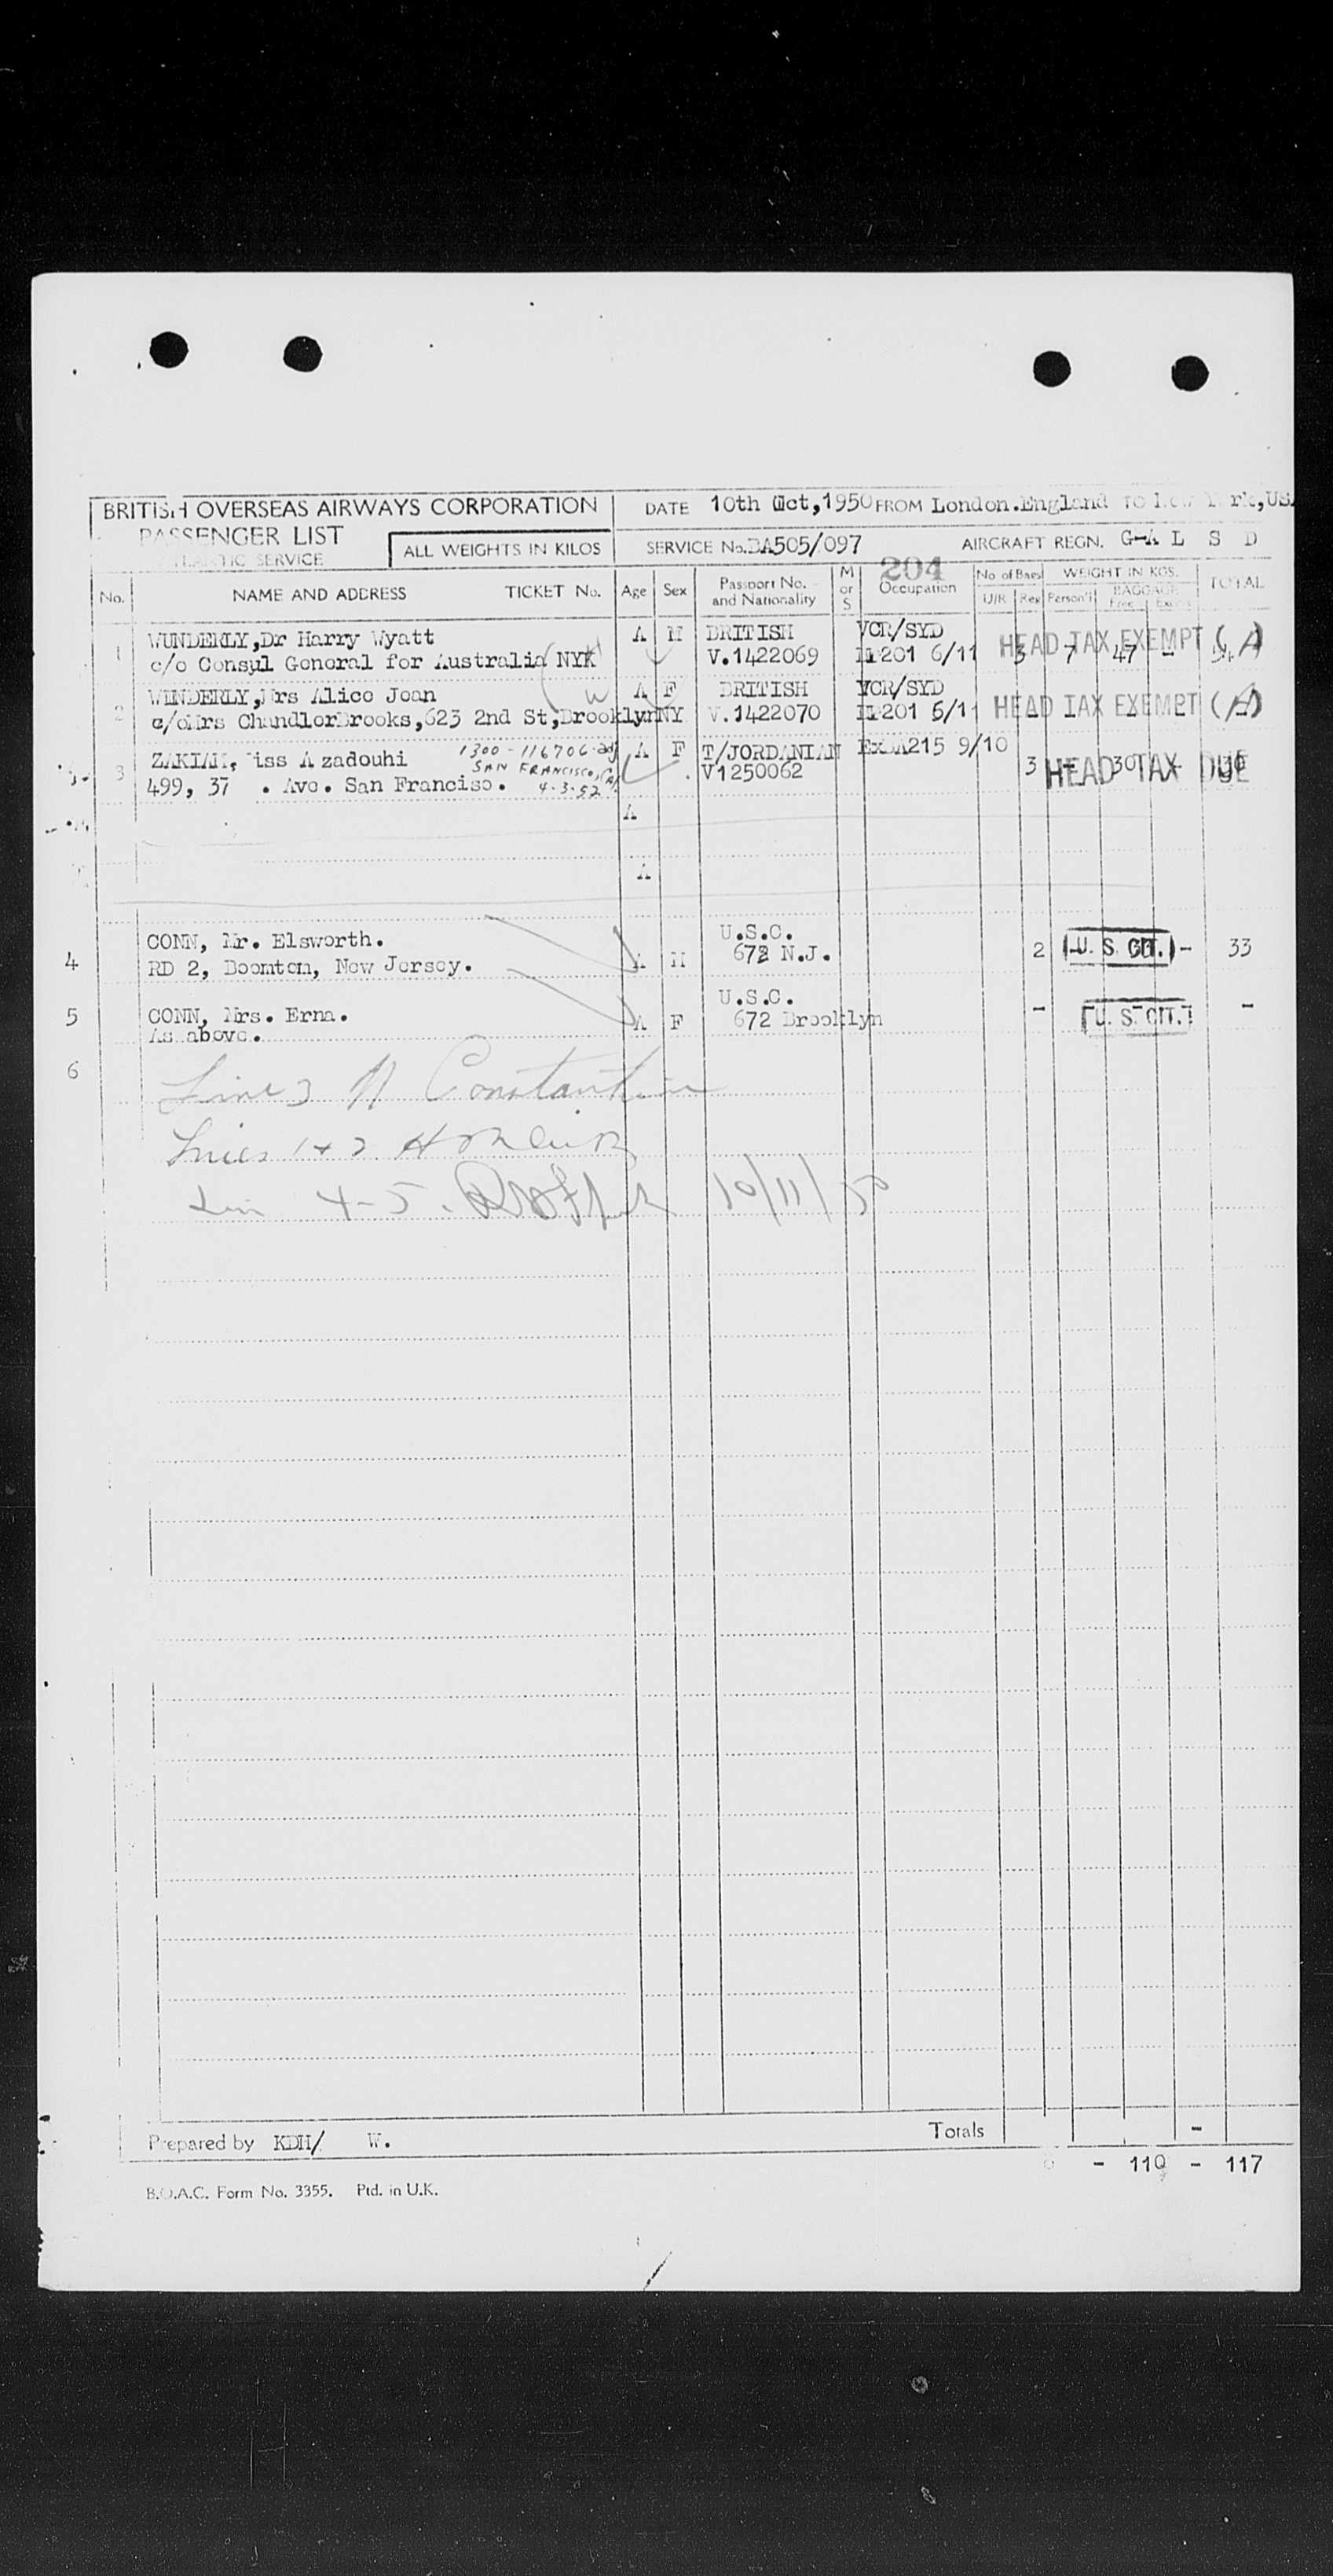 BRITISH OVERSEAS AIRWAYS CORPORATION
DATE 10th Oct,1950 FROM London.England TO New York,USA
PASSENGER LIST
ATLANTIC SERVICE
ALL WEIGHTS IN KILOS
SERVICE No. BA505/097
AIRCRAFT REGN. G-A L S D
204
No. NAME AND ADDRESS TICKET No. Age Sex Passport No. and Nationality M or S Occupation No of Bags U/R Reg WEIGHT IN KGS. Person'l BAGGAGE Free Excess TOTAL
1 WUNDERLY,Dr Harry Wyatt A M BRITISH VCR/SYD HEAD TAX EXEMPT (A)
c/o Consul General for Australia NYK V.1422069 201 6/11 3 7 47 -
WINDERLY,Mrs Alice Joan A F BRITISH VCR/SYD
2 c/oMrs ChandlerBrooks,623 2nd St,BrooklynNY V.1422070 201 6/11 HEAD TAX EXEMPT (A)
ZAKIAN, iss A zadouhi 1300-116706 A F T/JORDANIAN ExBA215 9/10
3 SAN FRANCISCO, V1250062 3 - 30 - 30 HEAD TAX DUE
499, 37 . Ave. San Francisco. 4-3-52
A
A
CONN, Mr. Elsworth. U.S.C.
4 RD 2, Boonton, New Jersey. A M 672 N.J. 2 U. S. CIT. - 33
5 CONN, Mrs. Erna. A F U.S.C.
As above. 672 Brooklyn - U. S. CIT. -
6
Line 3 N Constantine
Lines 1+2
Lin 4-5. 10/11/50
Totals -
Prepared by KDH/ W.
- 110 - 117
B.O.A.C. Form No. 3355. Ptd. in U.K.